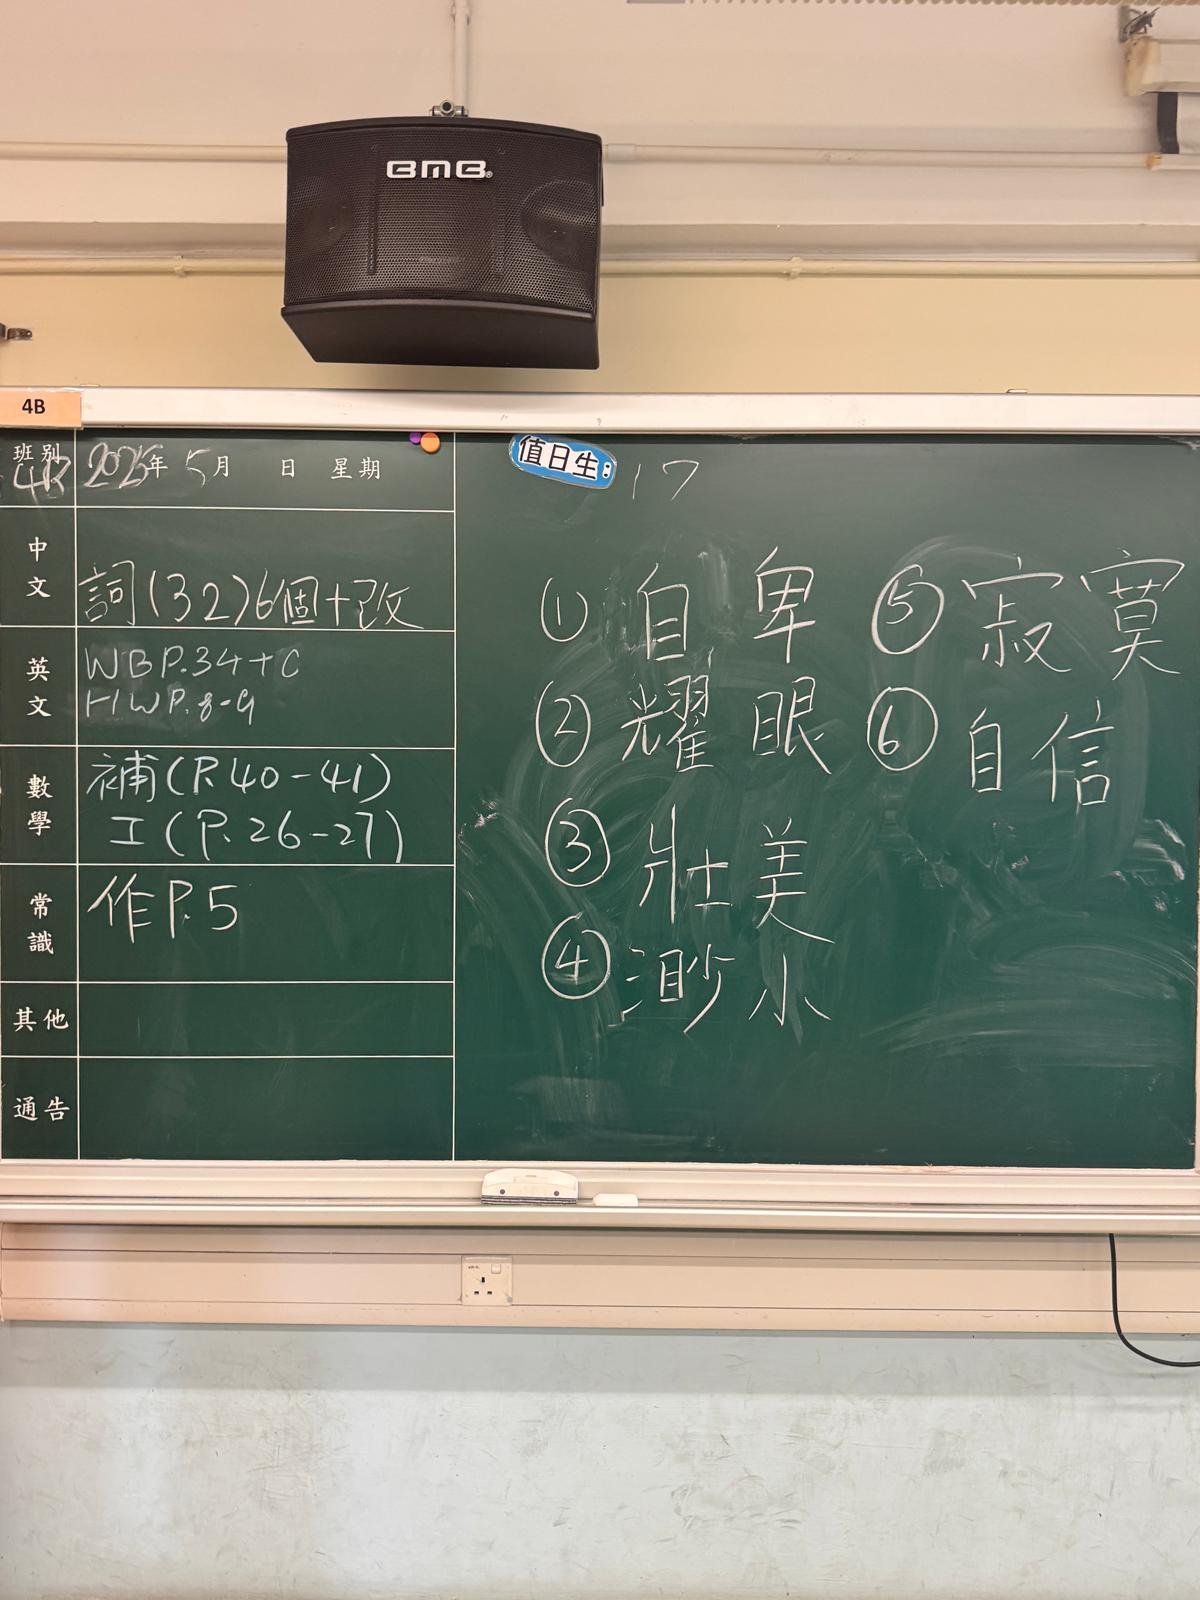 BMB
4B
班別 4B 2025年 5月 日 星期
中文
詞(32)6個+改
英文
WBP.34+C
HWP.8-9
數學
補(P.40-41)
工(P.26-27)
常識
作P.5
其他
通告
值日生: 17
① 自卑
② 耀眼
③ 壯美
④ 渺小
⑤ 寂寞
⑥ 自信